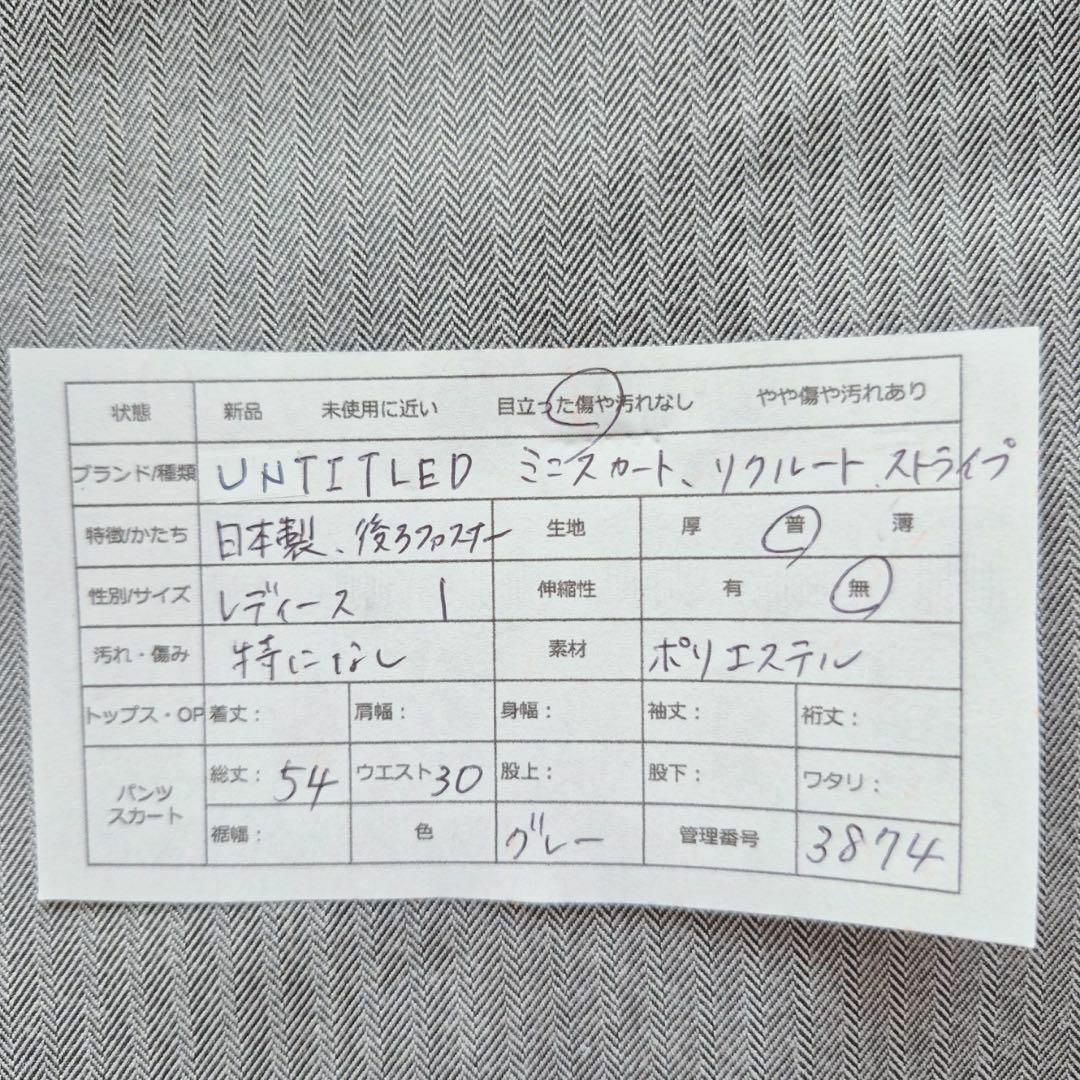 状態 新品 未使用に近い 目立った傷や汚れなし やや傷や汚れあり
ブランド/種類 UNTITLED ミニスカート、リクルート、ストライプ
特徴/かたち 日本製、後ろファスナー 生地 厚 普 薄
性別/サイズ レディース 1 伸縮性 有 無
汚れ・傷み 特になし 素材 ポリエステル
トップス・OP 着丈: 肩幅: 身幅: 袖丈: 裄丈:
パンツ スカート 総丈: 54 ウエスト 30 股上: 股下: ワタリ:
裾幅: 色 グレー 管理番号 3874